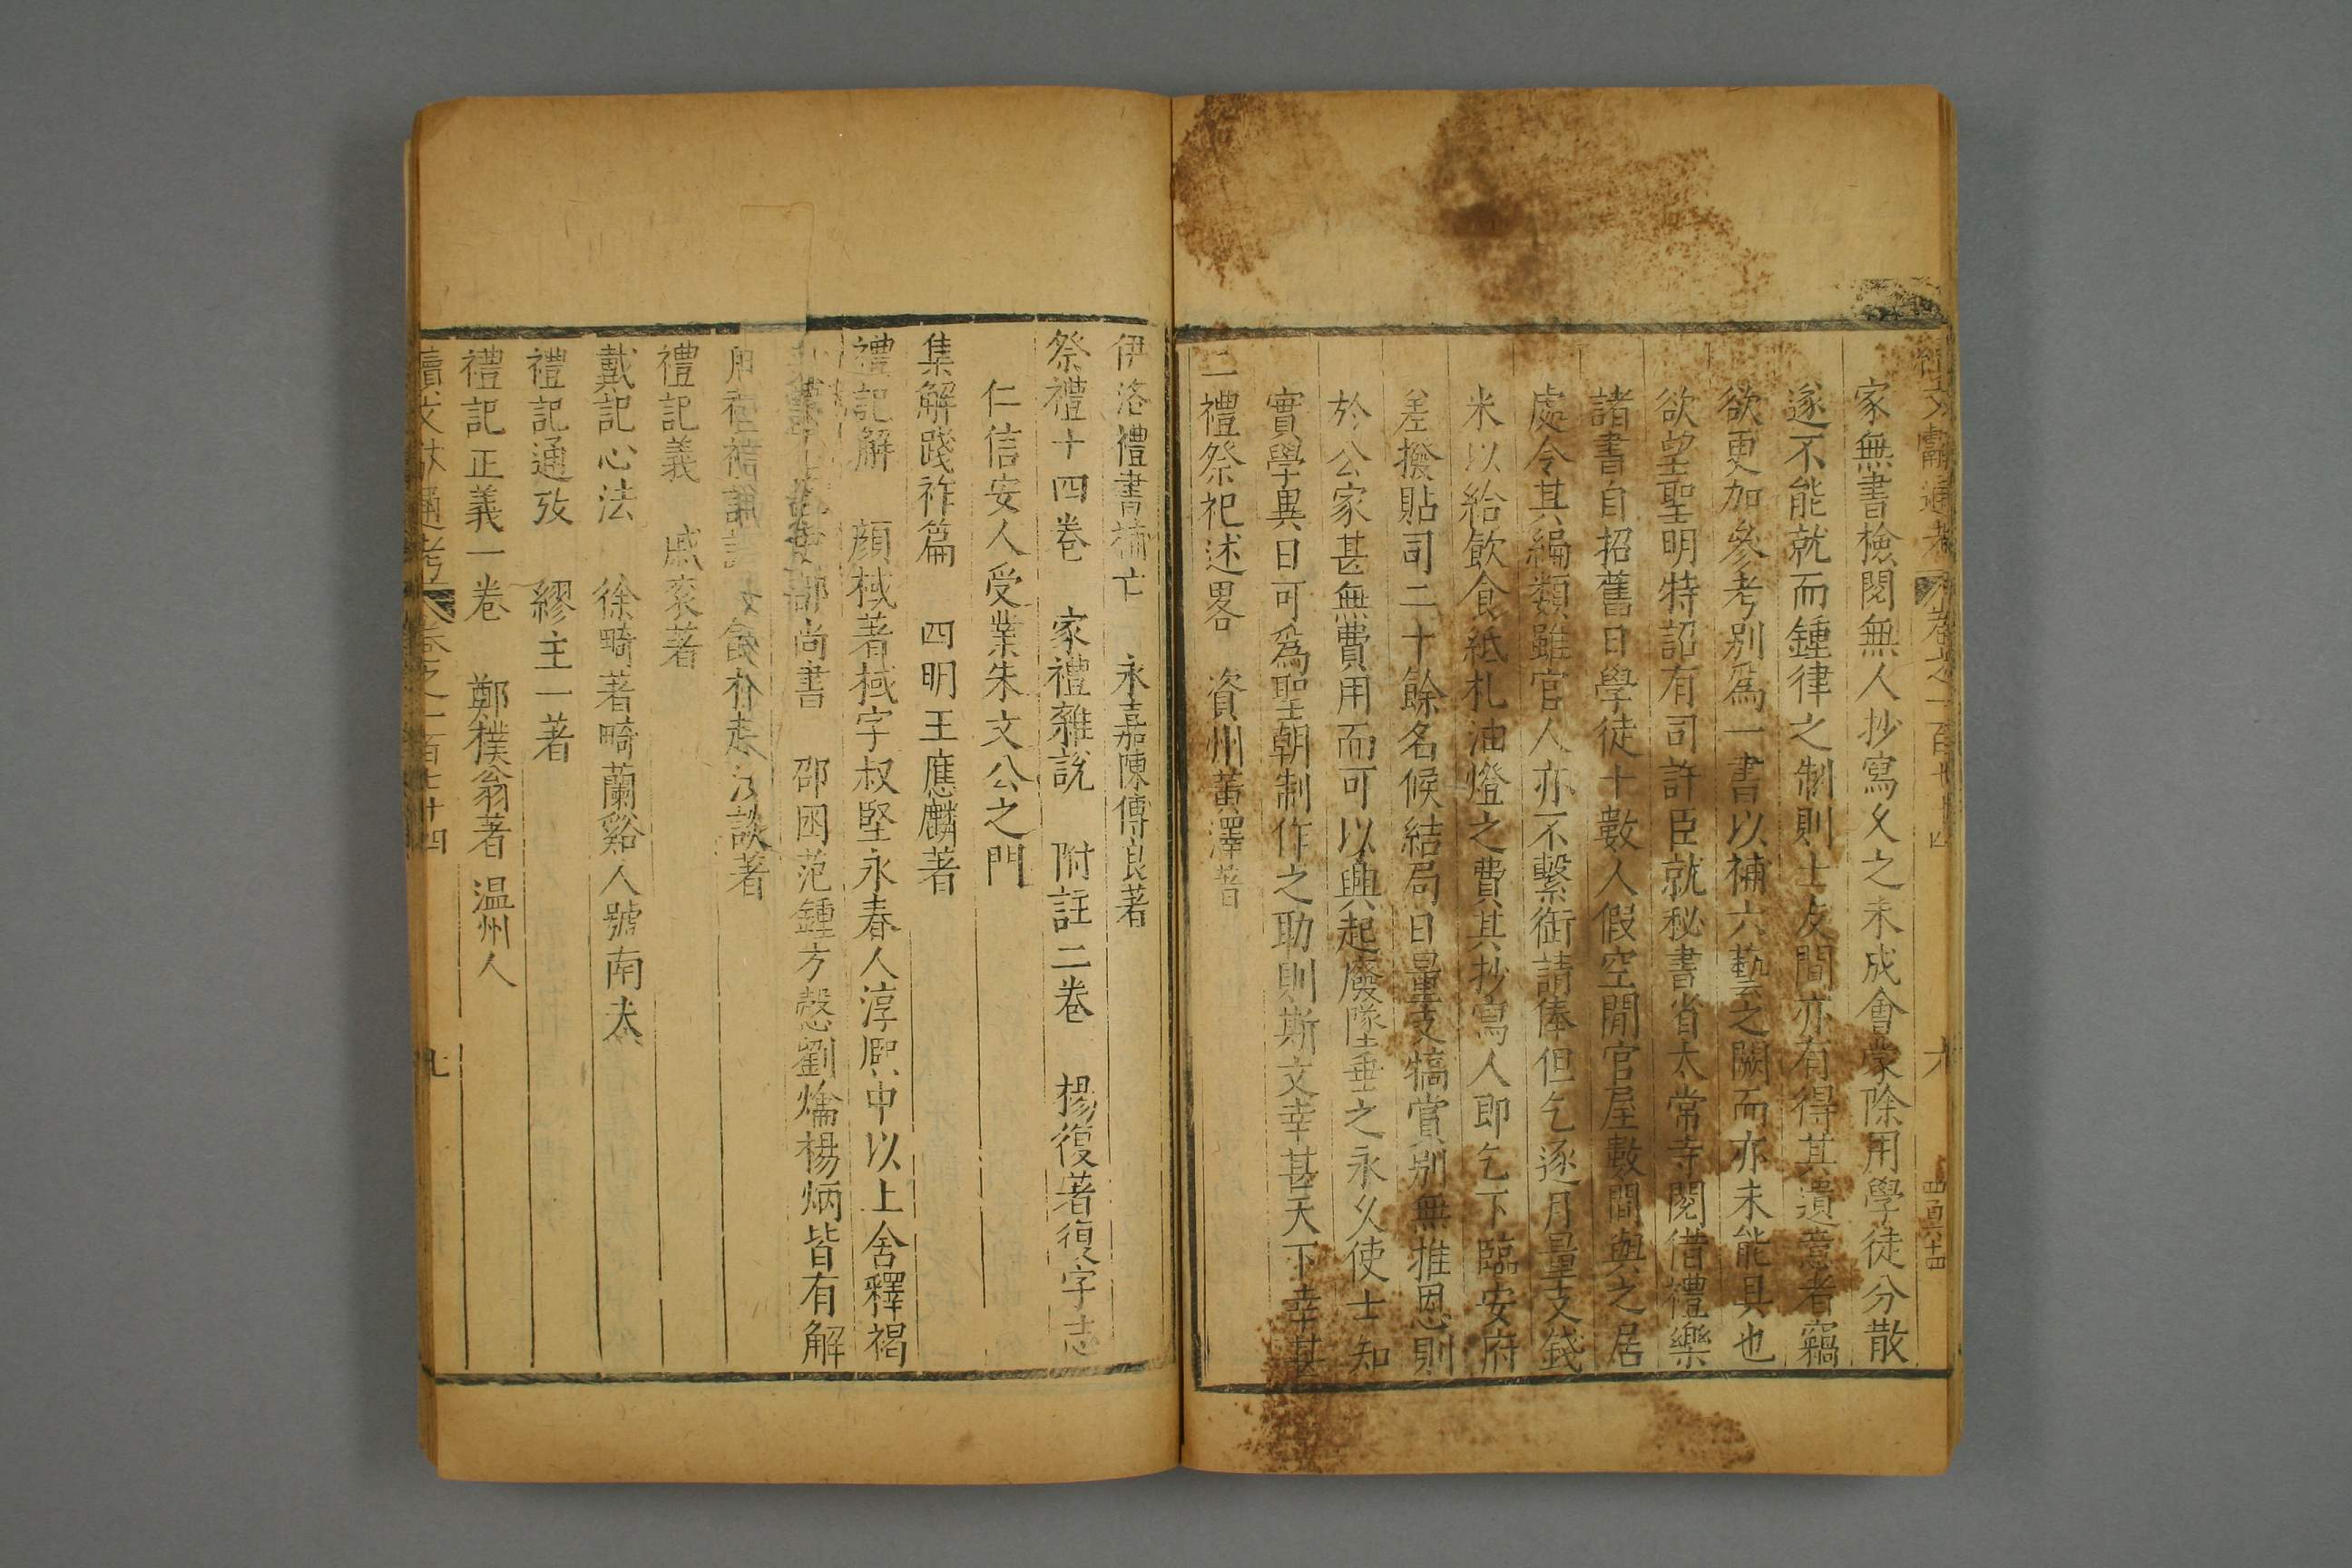 續文獻通考 卷之一百七十四 六 四百六十四
家無書檢閱無人抄寫久之未成會蒙除用學徒分散
遂不能就而鍾律之制則士友間亦有得其遺意者竊
欲更加參考别爲一書以補六藝之闕而亦未能具也
欲望聖明特詔有司許臣就秘書省太常寺閱借禮樂
諸書自招舊日學徒十數人假空閒官屋數間與之居
處令其編類雖官人亦不繫銜請俸但乞逐月量支錢
米以給飲食紙札油燈之費其抄寫人即乞下臨安府
差撥貼司二十餘名候結局日量支犒賞别無推恩則
於公家甚無費用而可以興起廢墜垂之永久使士知
實學異日可爲聖朝制作之助則斯文幸甚天下幸甚
三禮祭祀述畧 資州黃澤著
伊洛禮書補亡 永嘉陳傅良著
祭禮十四卷 家禮雜說 附註二卷 楊復著復字志
仁信安人受業朱文公之門
集解踐祚篇 四明王應麟著
禮記解 顏棫著棫字叔堅永春人淳熈中以上舍釋褐
尚書 邵囦范鍾方慤劉爚楊炳皆有解
著
禮記義 戚袞著
戴記心法 徐畸著畸蘭谿人號南太
禮記通攷 繆主一著
禮記正義一卷 鄭樸翁著 温州人
續文獻通考 卷之一百七十四 七